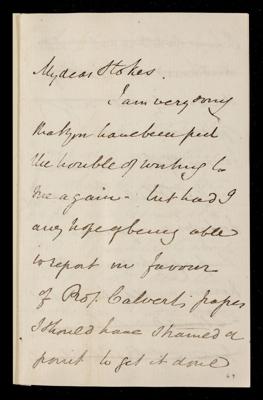 My dear Stokes.
I am very sorry
that you have been put
the trouble of writing to
me again - but had I
any hope of being able
to report in favour
of Prof. Calvert's paper
I should have strained a
point to get it done